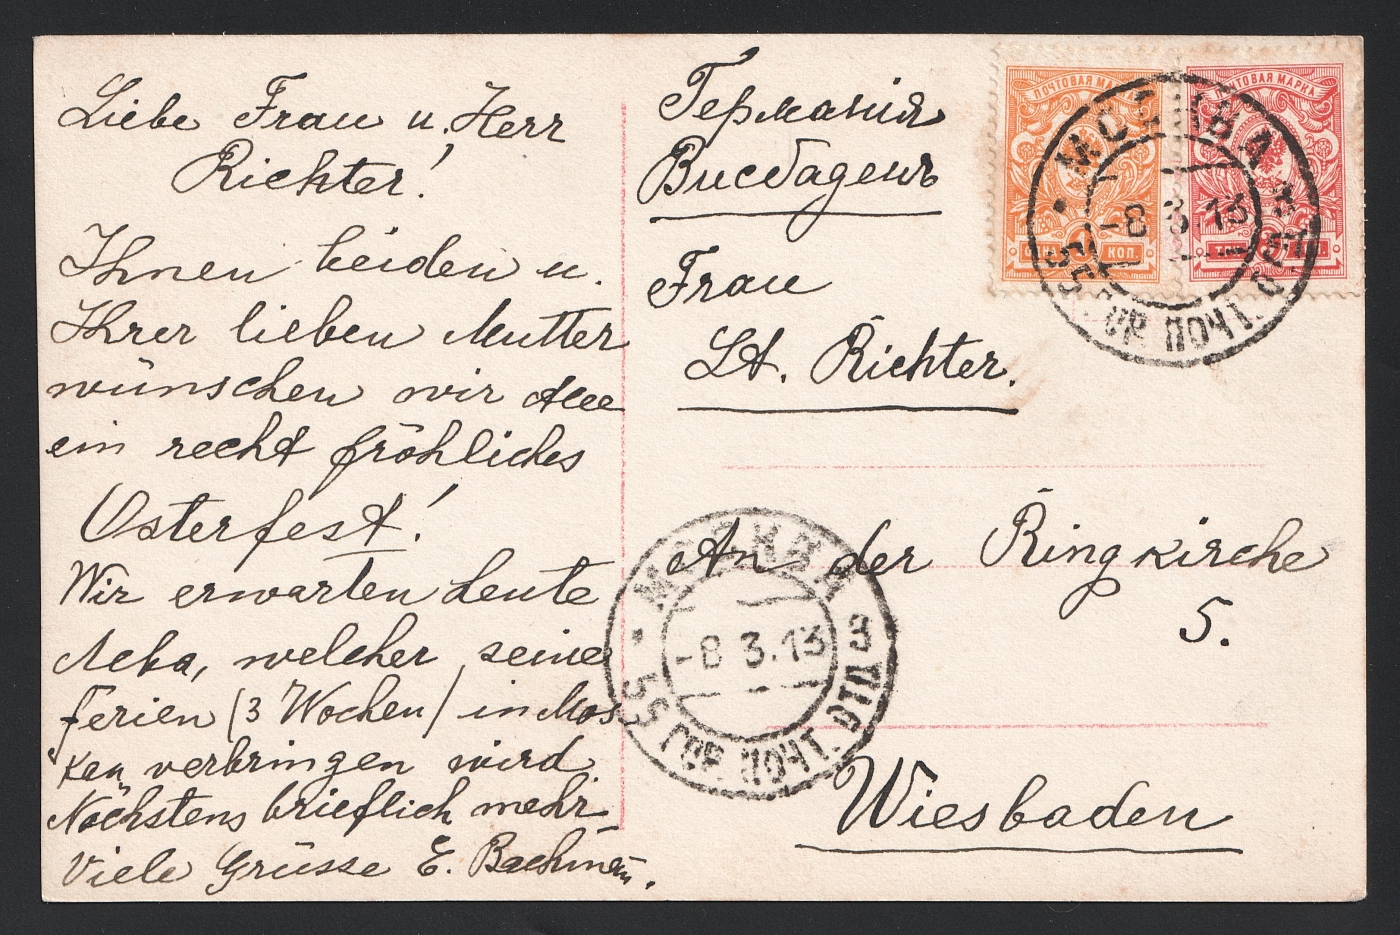 Liebe Frau u. Herr
Richter!
Ihnen beiden u.
Ihrer lieben Mutter
wünschen wir Alle
ein recht fröhliches
Osterfest!
Wir erwarten heute
welcher seine
Ferien (3 Wochen) in Mos
kau verbringen wird.
Nächstens brieflich mehr
Viele Grüsse E. Bachmann.
Германія
Висбаденъ
Frau
Richter.
An der Ringkirche
5.
Wiesbaden
ПОЧТОВАЯ МАРКА
КОП.
ПОЧТОВАЯ МАРКА
МОСКВА
-8 3.13
55 ГОР. ПОЧТ. ОТД.
МОСКВА
-8 3.13
55 ГОР. ПОЧТ. ОТД.